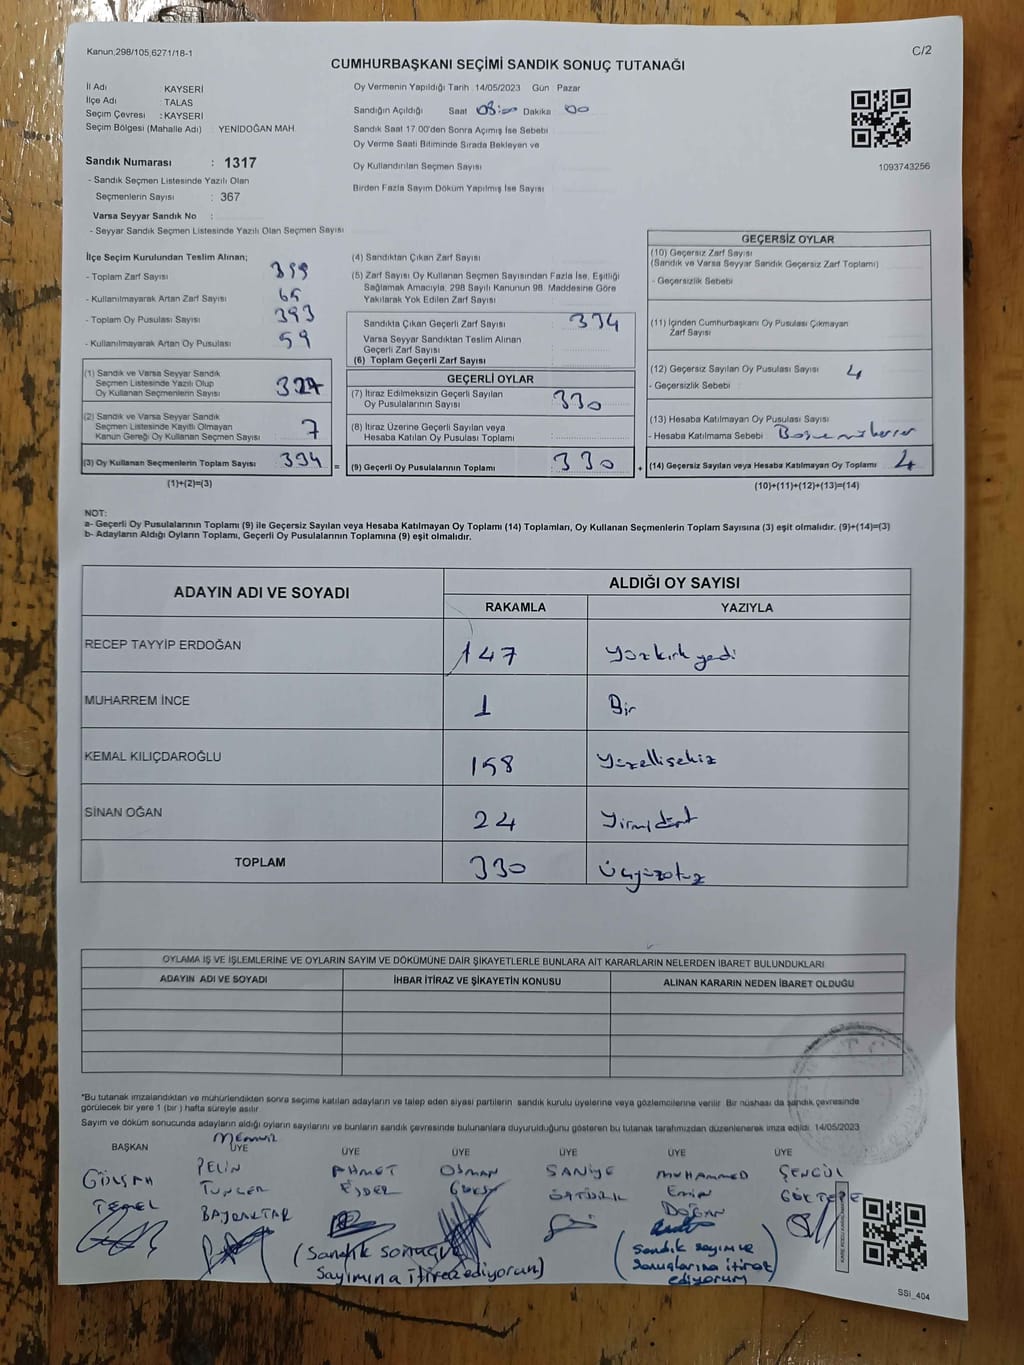 Kanun,298/105,6271/18-1
C/2
CUMHURBAŞKANI SEÇİMİ SANDIK SONUÇ TUTANAĞI
İl Adı KAYSERİ
İlçe Adı TALAS
Seçim Çevresi : KAYSERİ
Seçim Bölgesi (Mahalle Adı) : YENİDOĞAN MAH.
Oy Vermenin Yapıldığı Tarih 14/05/2023 Gün Pazar
Sandığın Açıldığı Saat 08:00 Dakika 00
Sandık Saat 17.00'den Sonra Açımış İse Sebebi
Oy Verme Saati Bitiminde Sırada Bekleyen ve
Oy Kullandırılan Seçmen Sayısı
Birden Fazla Sayım Döküm Yapılmış İse Sayısı
1093743256
Sandık Numarası : 1317
- Sandık Seçmen Listesinde Yazılı Olan
Seçmenlerin Sayısı : 367
Varsa Seyyar Sandık No :
- Seyyar Sandık Seçmen Listesinde Yazılı Olan Seçmen Sayısı
İlçe Seçim Kurulundan Teslim Alınan;
- Toplam Zarf Sayısı 399
- Kullanılmayarak Artan Zarf Sayısı 65
- Toplam Oy Pusulası Sayısı 393
- Kullanılmayarak Artan Oy Pusulası 59
(1) Sandık ve Varsa Seyyar Sandık
Seçmen Listesinde Yazılı Olup
Oy Kullanan Seçmenlerin Sayısı 327
(2) Sandık ve Varsa Seyyar Sandık
Seçmen Listesinde Kayıtlı Olmayan
Kanun Gereği Oy Kullanan Seçmen Sayısı 7
(3) Oy Kullanan Seçmenlerin Toplam Sayısı 334 =
(1)+(2)=(3)
(4) Sandıktan Çıkan Zarf Sayısı
(5) Zarf Sayısı Oy Kullanan Seçmen Sayısından Fazla İse, Eşitliği
Sağlamak Amacıyla, 298 Sayılı Kanunun 98. Maddesine Göre
Yakılarak Yok Edilen Zarf Sayısı
Sandıkta Çıkan Geçerli Zarf Sayısı 334
Varsa Seyyar Sandıktan Teslim Alınan
Geçerli Zarf Sayısı
(6) Toplam Geçerli Zarf Sayısı
GEÇERLİ OYLAR
(7) İtiraz Edilmeksizin Geçerli Sayılan
Oy Pusulalarının Sayısı 330
(8) İtiraz Üzerine Geçerli Sayılan veya
Hesaba Katılan Oy Pusulası Toplamı
(9) Geçerli Oy Pusulalarının Toplamı 330 +
GEÇERSİZ OYLAR
(10) Geçersiz Zarf Sayısı
(Sandık ve Varsa Seyyar Sandık Geçersiz Zarf Toplamı)
- Geçersizlik Sebebi
(11) İçinden Cumhurbaşkanı Oy Pusulası Çıkmayan
Zarf Sayısı
(12) Geçersiz Sayılan Oy Pusulası Sayısı 4
- Geçersizlik Sebebi :
(13) Hesaba Katılmayan Oy Pusulası Sayısı
- Hesaba Katılmama Sebebi
(14) Geçersiz Sayılan veya Hesaba Katılmayan Oy Toplamı 4
(10)+(11)+(12)+(13)=(14)
NOT:
a- Geçerli Oy Pusulalarının Toplamı (9) ile Geçersiz Sayılan veya Hesaba Katılmayan Oy Toplamı (14) Toplamları, Oy Kullanan Seçmenlerin Toplam Sayısına (3) eşit olmalıdır. (9)+(14)=(3)
b- Adayların Aldığı Oyların Toplamı, Geçerli Oy Pusulalarının Toplamına (9) eşit olmalıdır.
ADAYIN ADI VE SOYADI
ALDIĞI OY SAYISI
RAKAMLA YAZIYLA
RECEP TAYYİP ERDOĞAN 147 yüzkırk yedi
MUHARREM İNCE 1 Bir
KEMAL KILIÇDAROĞLU 158 Yüzellisekiz
SİNAN OĞAN 24 Yirmidört
TOPLAM 330 Üçyüzotuz
OYLAMA İŞ VE İŞLEMLERİNE VE OYLARIN SAYIM VE DÖKÜMÜNE DAİR ŞİKAYETLERLE BUNLARA AİT KARARLARIN NELERDEN İBARET BULUNDUKLARI
ADAYIN ADI VE SOYADI İHBAR İTİRAZ VE ŞİKAYETİN KONUSU ALINAN KARARIN NEDEN İBARET OLDUĞU
*Bu tutanak imzalandıktan ve mühürlendikten sonra seçime katılan adayların ve talep eden siyasi partilerin sandık kurulu üyelerine veya gözlemcilerine verilir. Bir nüshası da sandık çevresinde
görülecek bir yere 1 (bir) hafta süreyle asılır.
Sayım ve döküm sonucunda adayların aldığı oyların sayılarını ve bunların sandık çevresinde bulunanlara duyurulduğunu gösteren bu tutanak tarafımızdan düzenlenerek imza edildi. 14/05/2023
BAŞKAN Memur ÜYE ÜYE ÜYE ÜYE ÜYE ÜYE
GÜLŞAH TEMEL
PELİN TUNÇER BAYRAKTAR
AHMET EJDER
OSMAN
SANİYE ÖZTÜRK
MUHAMMED Emin DOĞAN
ŞENGÜL GÖKTEPE
(Sandık sonuç ve
Sayımına itiraz ediyorum)
(Sandık sayım ve
sonuçlarına itiraz
ediyorum)
SSi_404